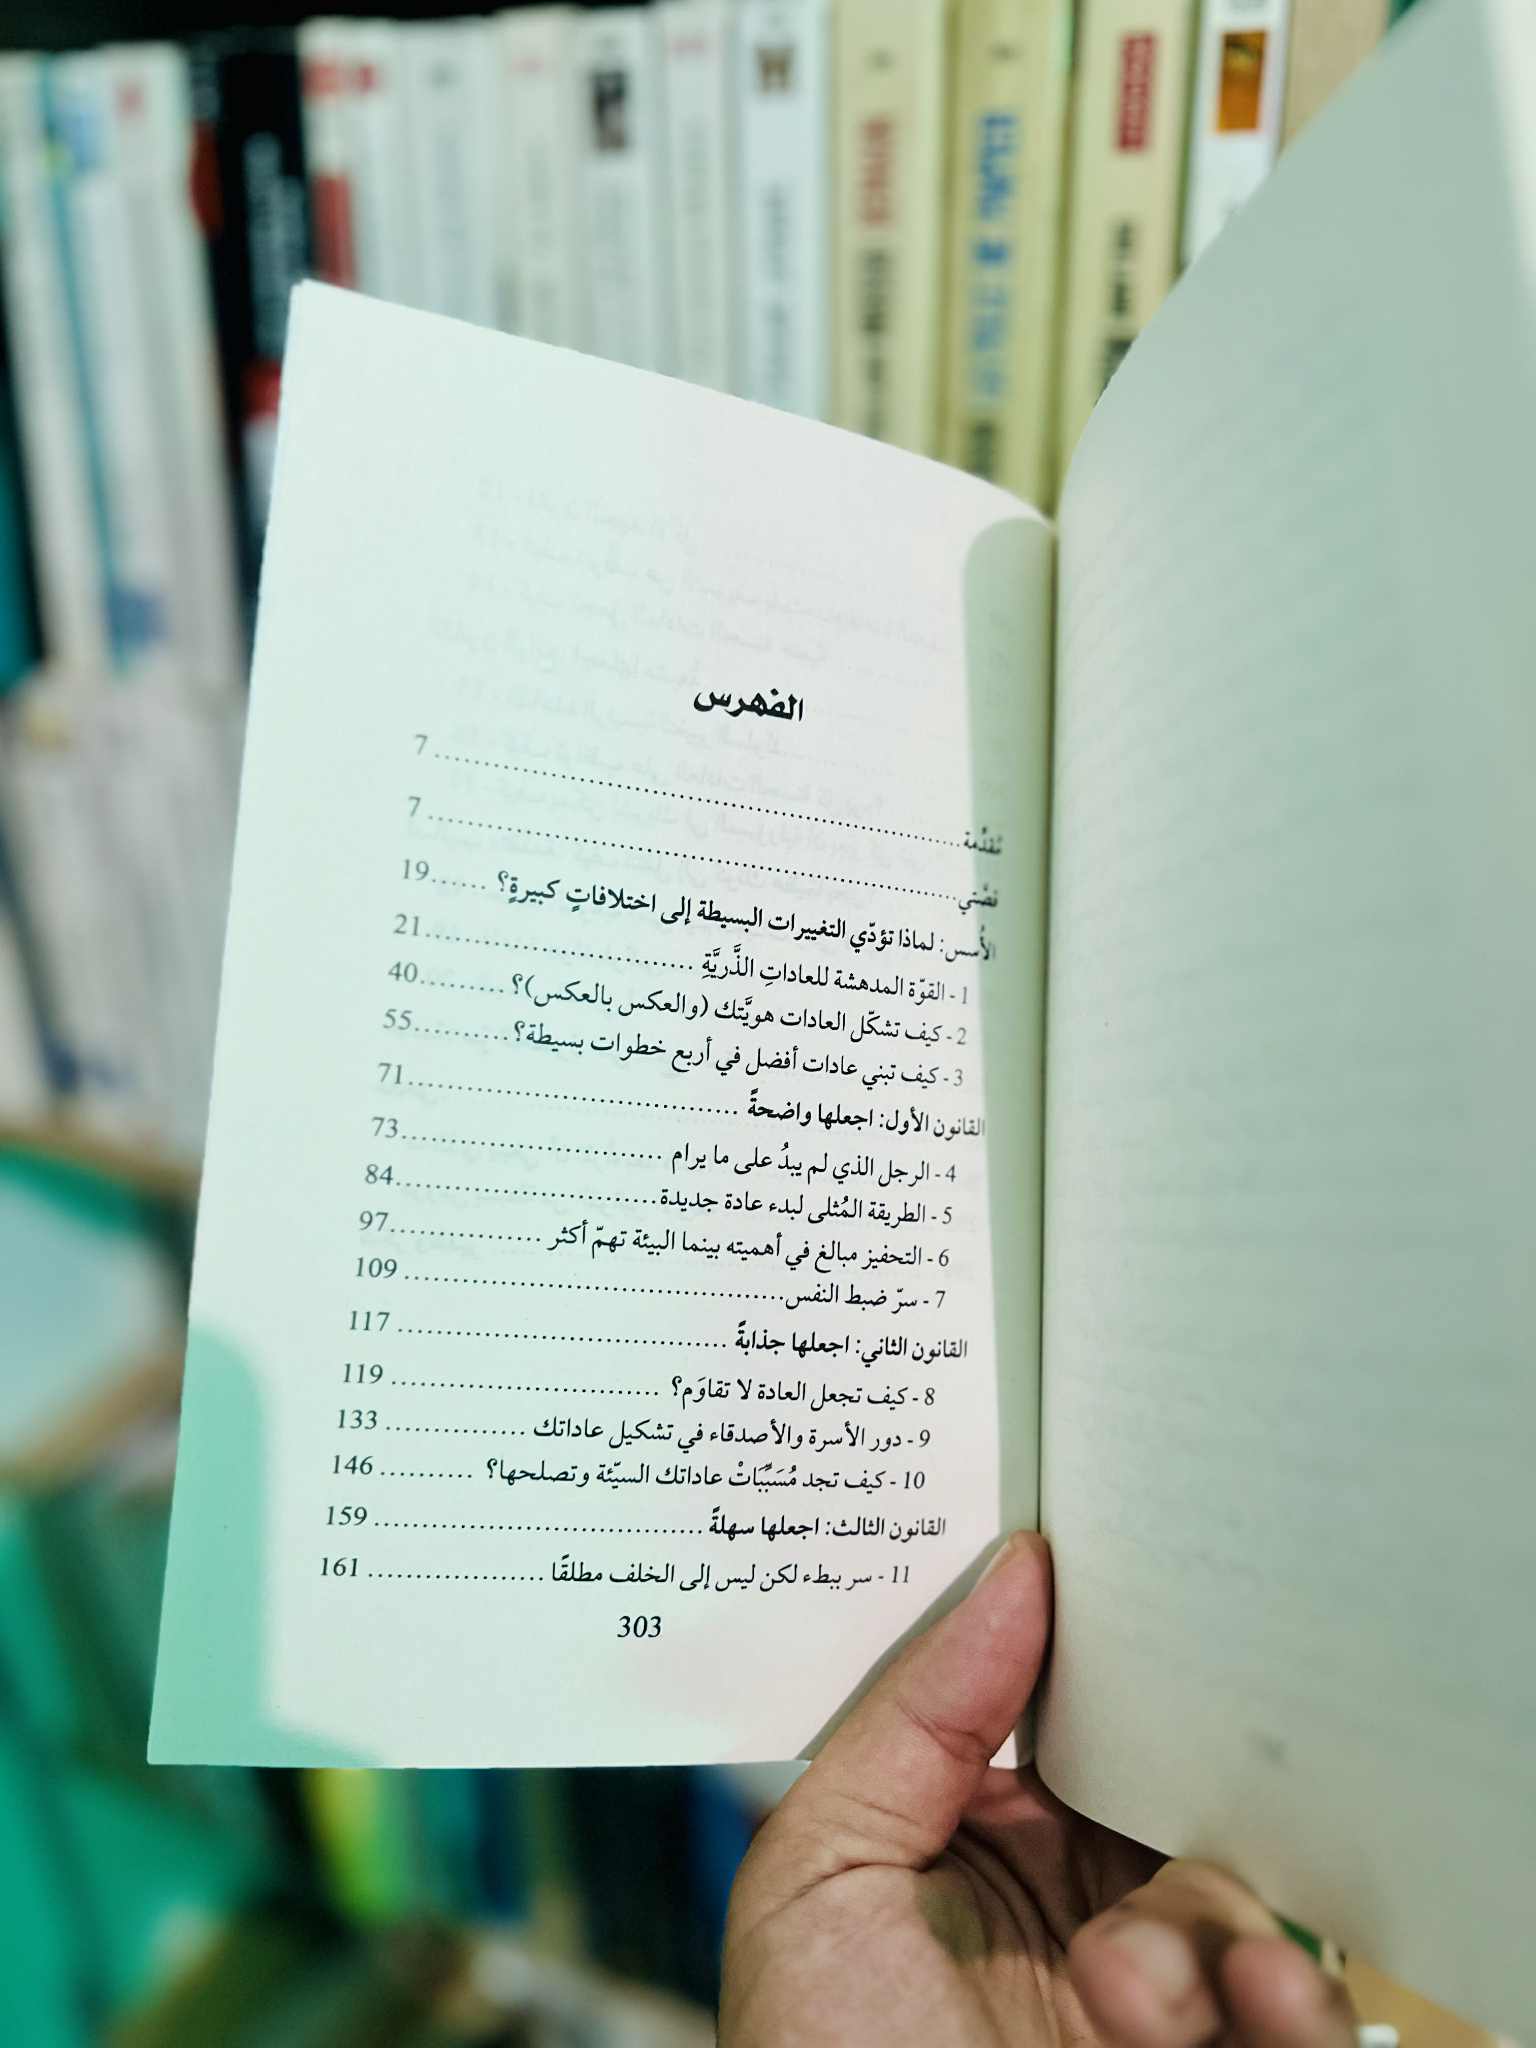 الفهرس
مُقدِّمة ........................................ 7
قصَّتي ........................................ 7
الأُسس: لماذا تؤدّي التغييرات البسيطة إلى اختلافاتٍ كبيرةٍ؟ ...... 19
1 - القوّة المدهشة للعاداتِ الذَّريَّةِ ........................ 21
2 - كيف تشكّل العادات هويَّتك (والعكس بالعكس)؟ ......... 40
3 - كيف تبني عادات أفضل في أربع خطوات بسيطة؟ .......... 55
القانون الأول: اجعلها واضحةً .................................. 71
4 - الرجل الذي لم يبدُ على ما يرام .......................... 73
5 - الطريقة المُثلى لبدء عادة جديدة .......................... 84
6 - التحفيز مبالغ في أهميته بينما البيئة تهمّ أكثر ................ 97
7 - سرّ ضبط النفس ...................................... 109
القانون الثاني: اجعلها جذابةً .................................. 117
8 - كيف تجعل العادة لا تقاوَم؟ ............................ 119
9 - دور الأسرة والأصدقاء في تشكيل عاداتك ............... 133
10 - كيف تجد مُسَبِّبَاتْ عاداتك السيّئة وتصلحها؟ .......... 146
القانون الثالث: اجعلها سهلةً .................................. 159
11 - سر ببطء لكن ليس إلى الخلف مطلقًا ................... 161
303